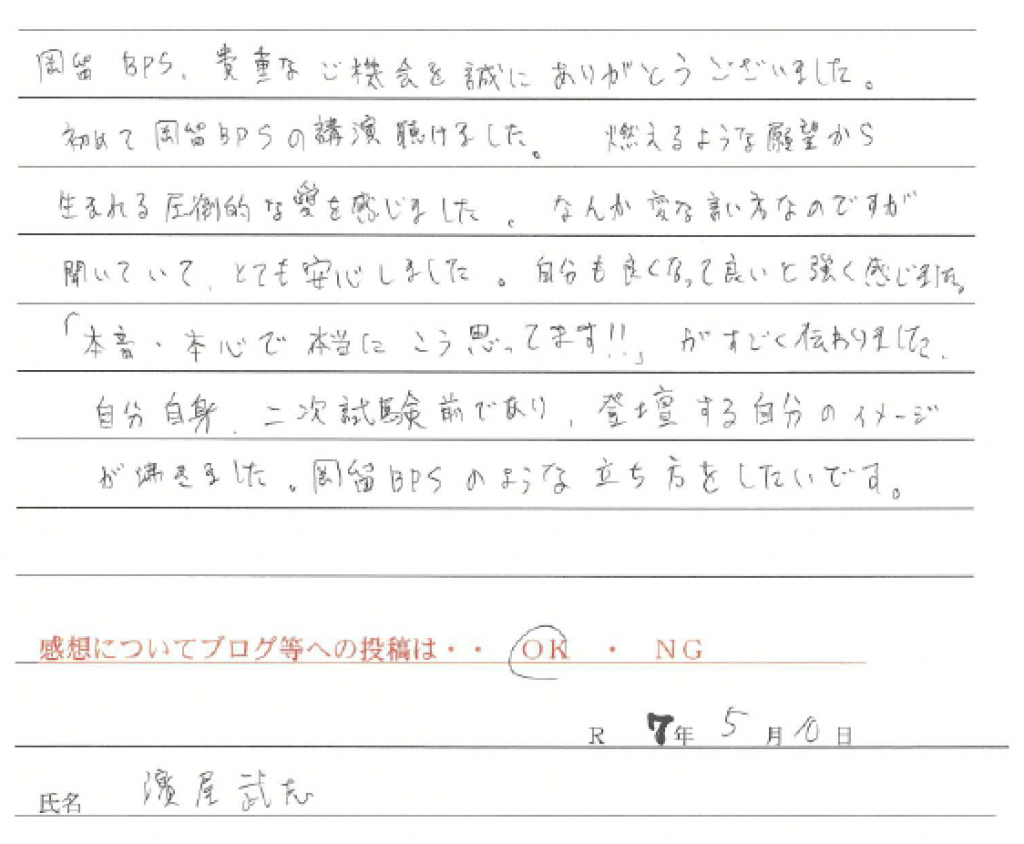 岡留BPS、貴重なご機会を誠にありがとうございました。
初めて岡留BPSの講演聴けました。燃えるような願望から
生まれる圧倒的な愛を感じました。なんか変な言い方なのですが
聞いていて、とても安心しました。自分も良くなって良いと強く感じました。
「本音・本心で本当にこう思ってます!!」がすごく伝わりました。
自分自身、二次試験前であり、登壇する自分のイメージ
が沸きました。岡留BPSのような立ち方をしたいです。
感想についてブログ等への投稿は・・ OK ・ NG
R 7年 5月10日
氏名 濱屋武志